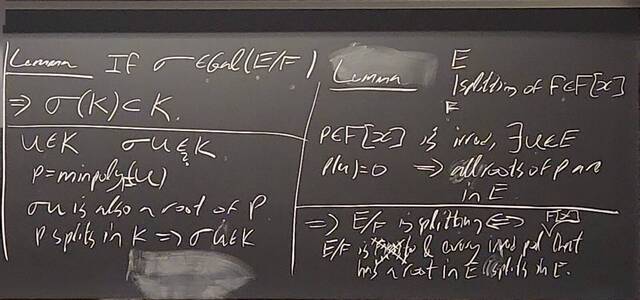 Lemma If σ∈Gal(E/F)
⇒ σ(K)⊂K.
u∈K σu∈K
?
p=minpoly_F(u)
σu is also a root of p
p splits in K ⇒ σu∈K
Lemma
E
| splitting of F∈F[x]
F
p∈F[x] is irred, ∃u∈E
p(u)=0 ⇒ all roots of p are
in E
⇒ E/F is splitting ⇔ F[x]
E/F is & every irred pol that
has a root in E splits in E.